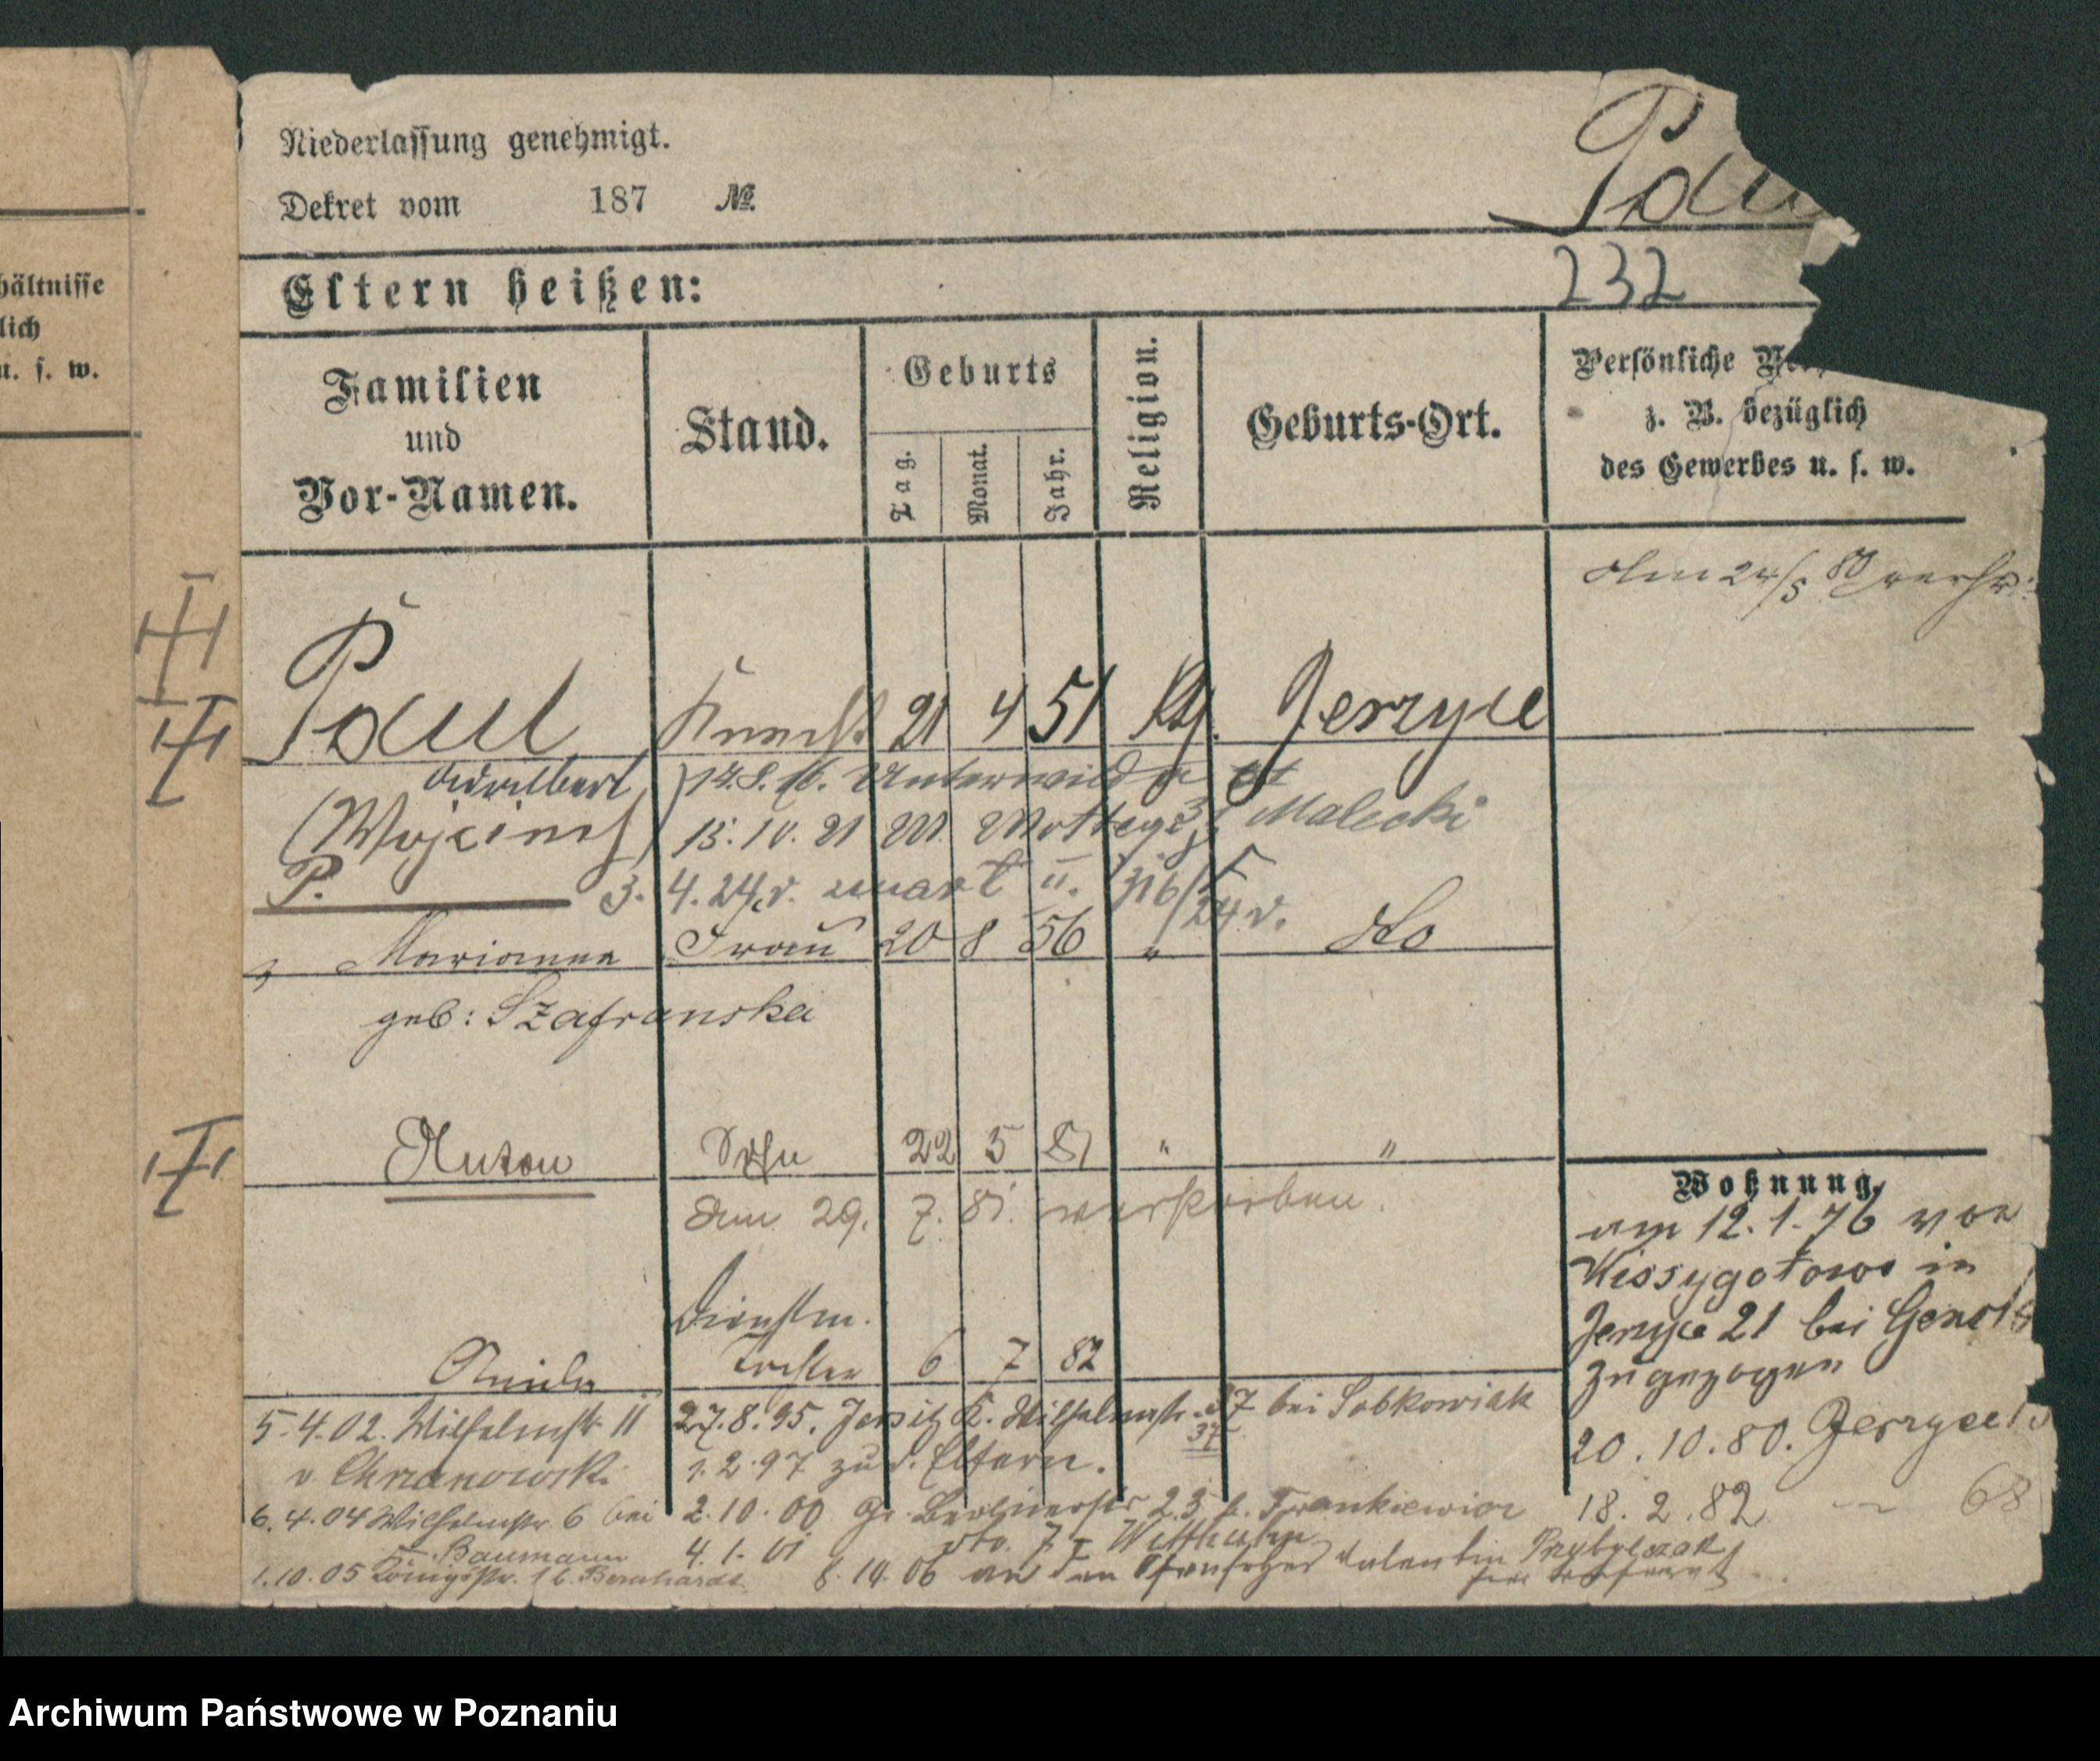 Niederlassung genehmigt.
Dekret vom 187 №
Pau
232
Eltern heißen:
hältnisse
lich
u. s. w.
Familien
und
Vor-Namen.
Stand.
Geburts
Tag.
Monat.
Jahr.
Religion.
Geburts-Ort.
Persönliche Ver
z. B. bezüglich
des Gewerbes u. s. w.
Am 24/5 80 verh:
Paul Knecht 21 4 51 Kth. Jerzyce
Adalbert 14.8.16. Unterwilda
(Wojciech) 15.10.21 W. 3 Malecki
P. 3.4.24 v. u. 316/24 v.
Marianna Frau 20 8 56 " do
geb: Szafranska
Anton Sohn 22 5 81 " "
den 29. 7. 81. verstorben.
Dienstm.
Tochter 6 7 82
Wohnung.
am 12.1.76 von
in
Jerzyce 21 bei
zugezogen
20.10.80. Jerzyce
18.2.82 — 68
5.4.02. Wilhelmstr 11 27.8.95. Jersitz K. Wilhelmstr. 37 bei Sobkowiak
37
v. Chrzanowski 1.2.97 zu d. Eltern.
6.4.04 Wilhelmstr. 6 bei 2.10.00 Gr. Berlinerstr 23 b. Frankiewicz
Baumann 4.1.01 dto. 7 I
1.10.05 Königsstr. 1 b. Bernhardt 8.10.06 an den Valentin Przybylszak